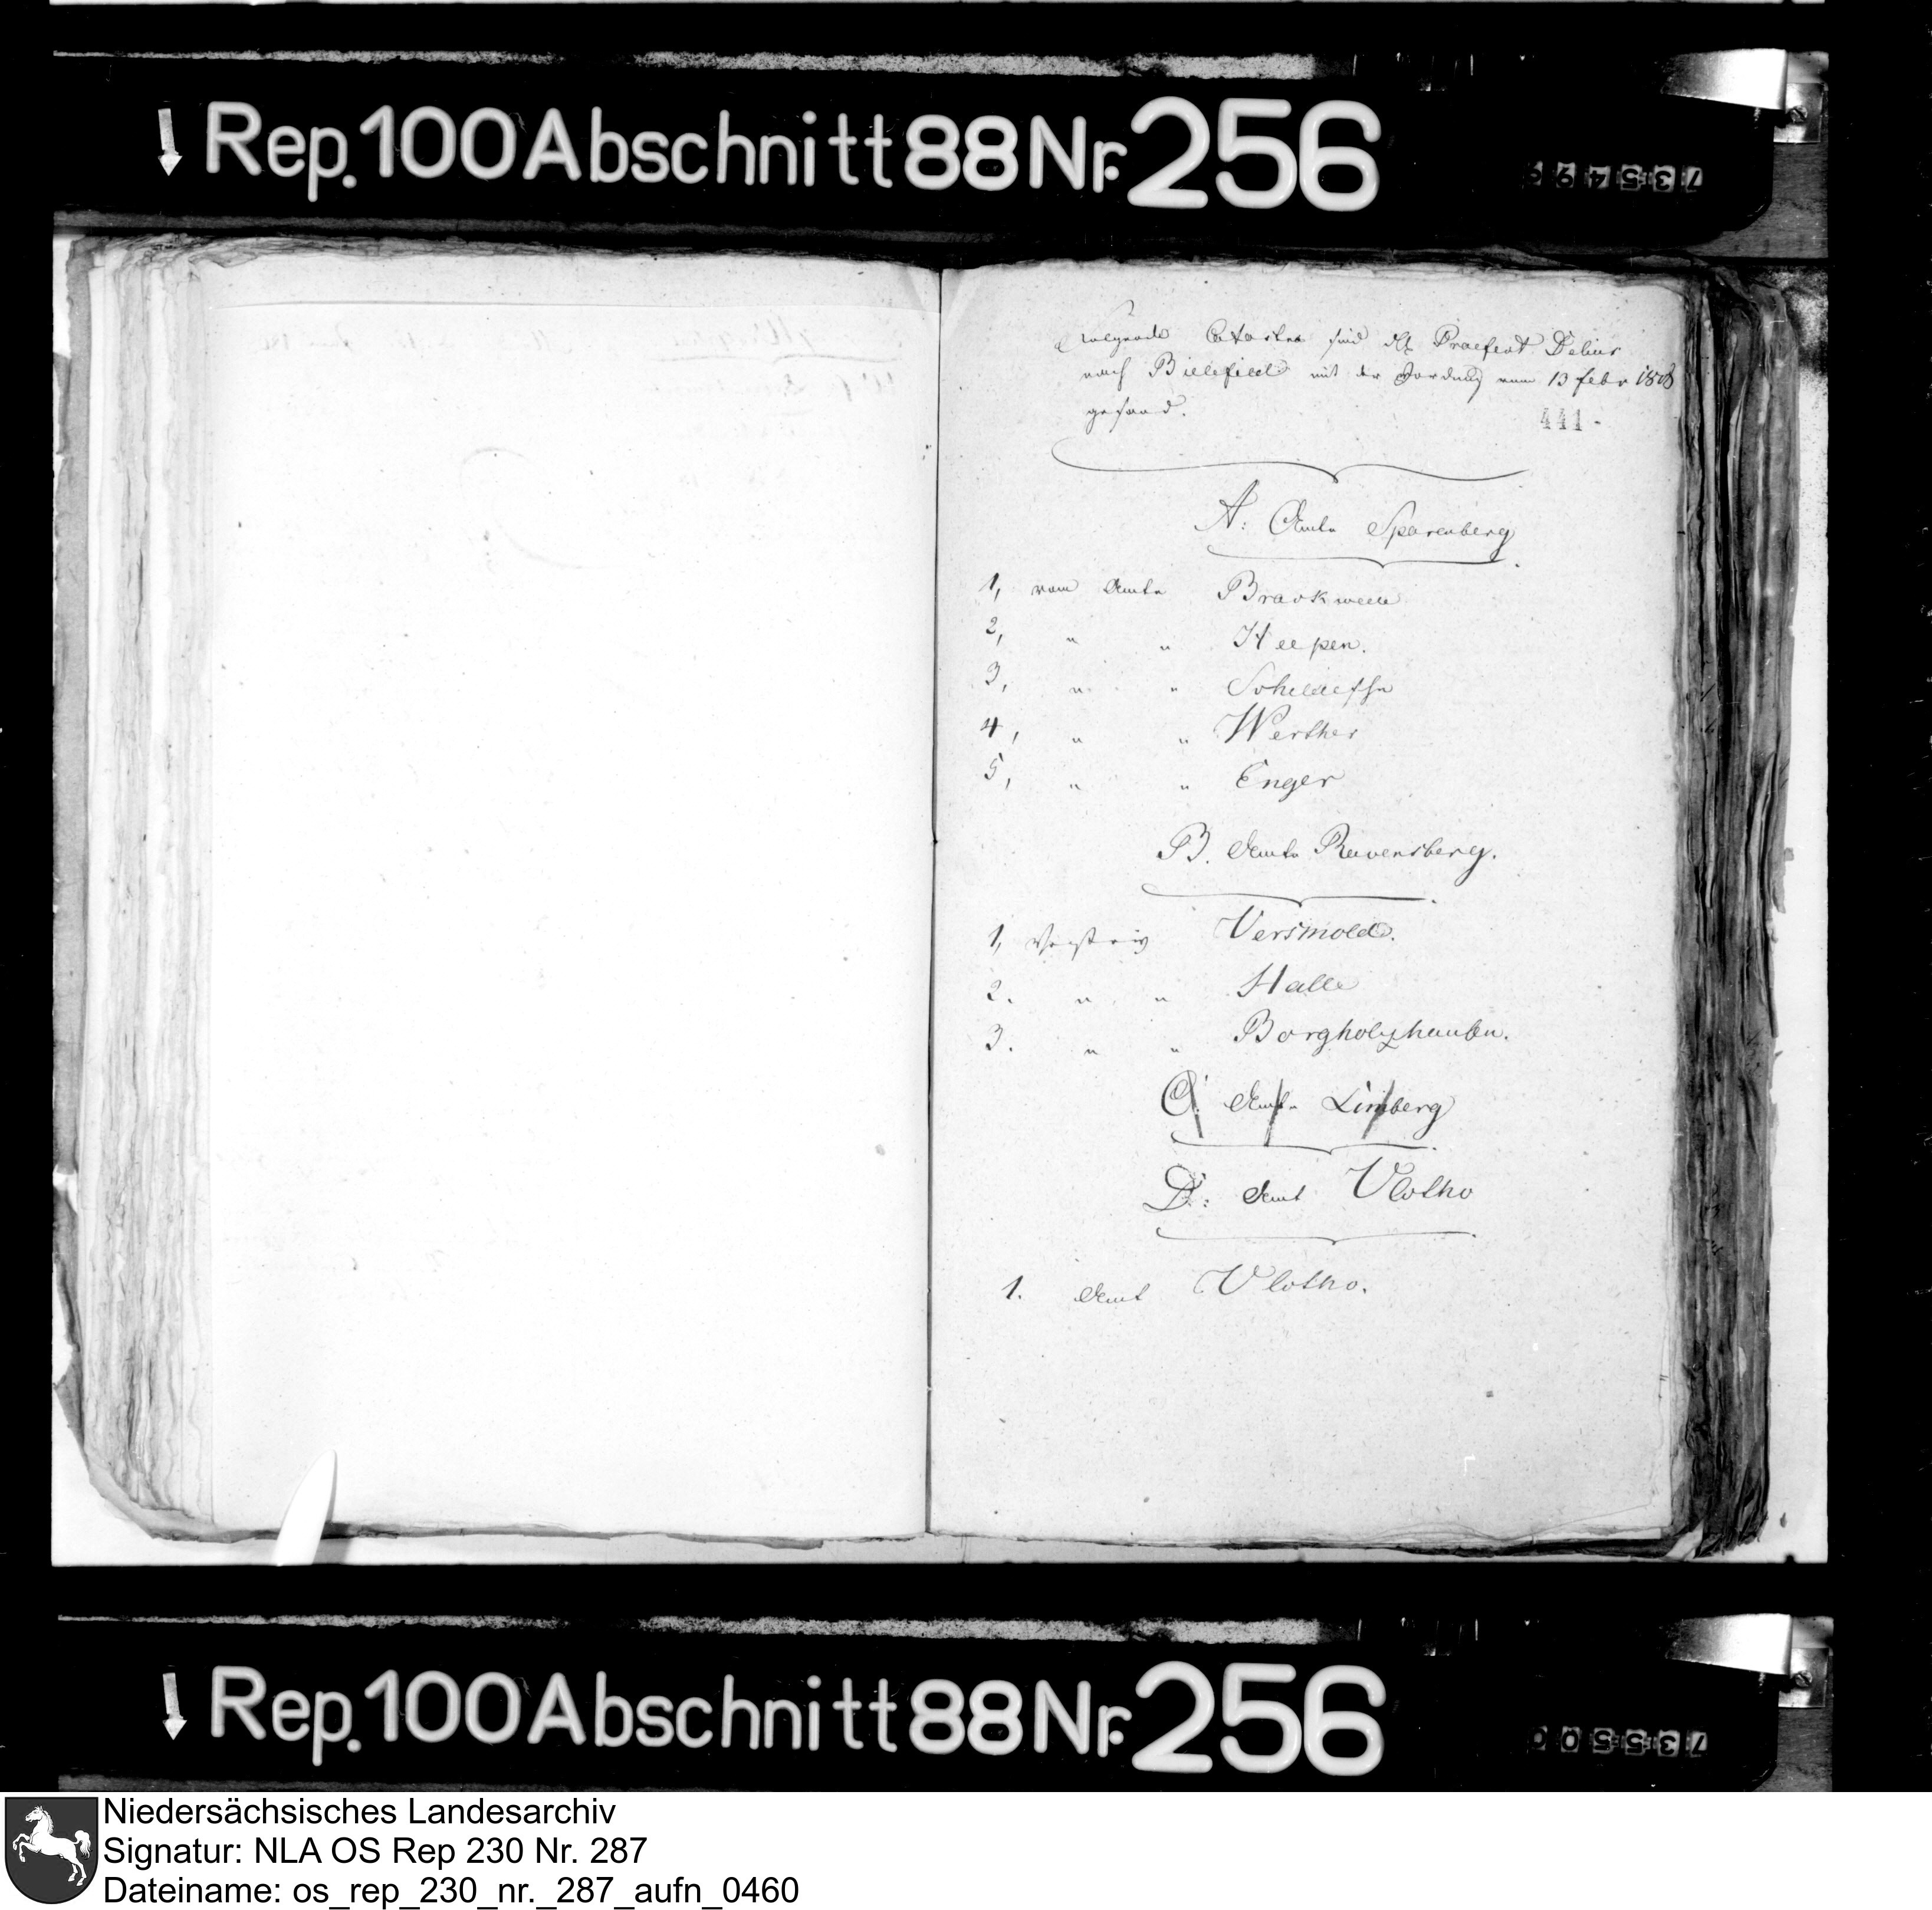 Rep. 100 Abschnitt 88 Nr. 256
Folgende Cataster sind dH Praefect Delius
nach Bielefield mit der vom 13 febr 1808
gesand.
441
A: Amte Sparenberg
1, vom Amte Brackwede
2, " " Heepen.
3, " " Schildesche
4, " " Werther
5, " " Enger
B. Amte Ravensberg.
1, Vogtei Versmold.
2. " " Halle
3. " " Borgholzhausen.
C. Amte Limberg
D: Amt Vlotho
1. Amt Vlotho.
Rep. 100 Abschnitt 88 Nr. 256
Niedersächsisches Landesarchiv
Signatur: NLA OS Rep 230 Nr. 287
Dateiname: os_rep_230_nr._287_aufn_0460